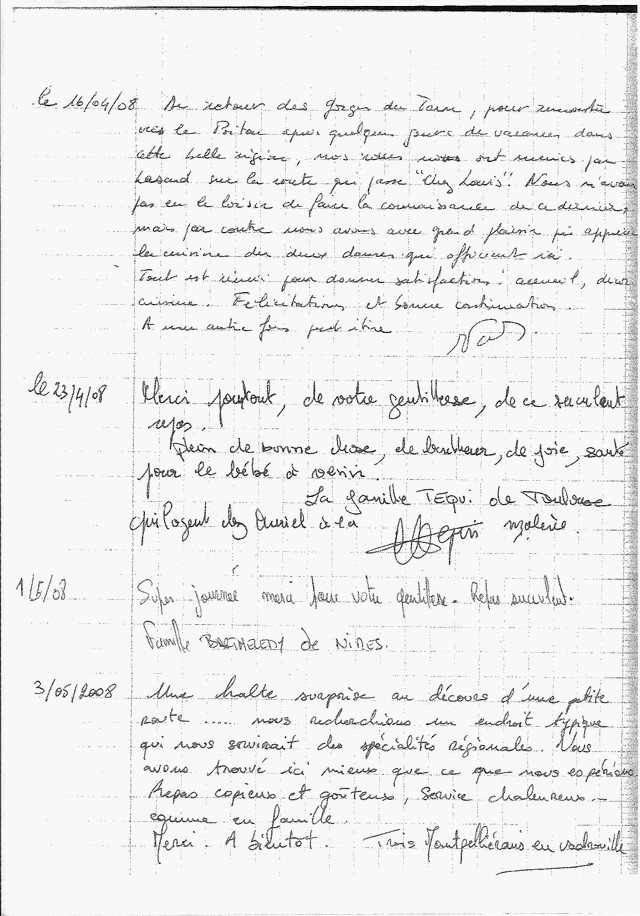 le 16/04/08 Au retour des gorges du Tarn, pour remonter
vers le Poitou après quelques jours de vacances dans
cette belle région, nos roues nous ont menés par
hasard sur la route qui passe "Chez Louis". Nous n'avons
pas eu le loisir de faire la connaissance de ce dernier,
mais par contre nous avons avec grand plaisir pu apprécier
la cuisine des deux dames qui officient ici.
Tout est réuni pour donner satisfactions : accueil, décor
cuisine. Félicitations et bonne continuation.
A une autre fois peut être
le 23/4/08 Merci pour tout, de votre gentillesse, de ce succulent
repas.
plein de bonne chose, de bonheur, de joie, santé
pour le bébé à venir.
La famille TEQUI de Toulouse
qui logent chez Muriel à la
1/5/08 Super journée merci pour votre gentillesse. Repas succulent.
Famille BARTHELEDY de NIMES.
3/05/2008 Une halte surprise au décours d'une petite
route ..... nous recherchions un endroit typique
qui nous servirait des spécialités régionales. Nous
avons trouvé ici mieux que ce que nous espérions
Repas copieux et goûteux, service chaleureux -
comme en famille.
Merci. A bientôt. Trois Montpelliérains en vadrouille